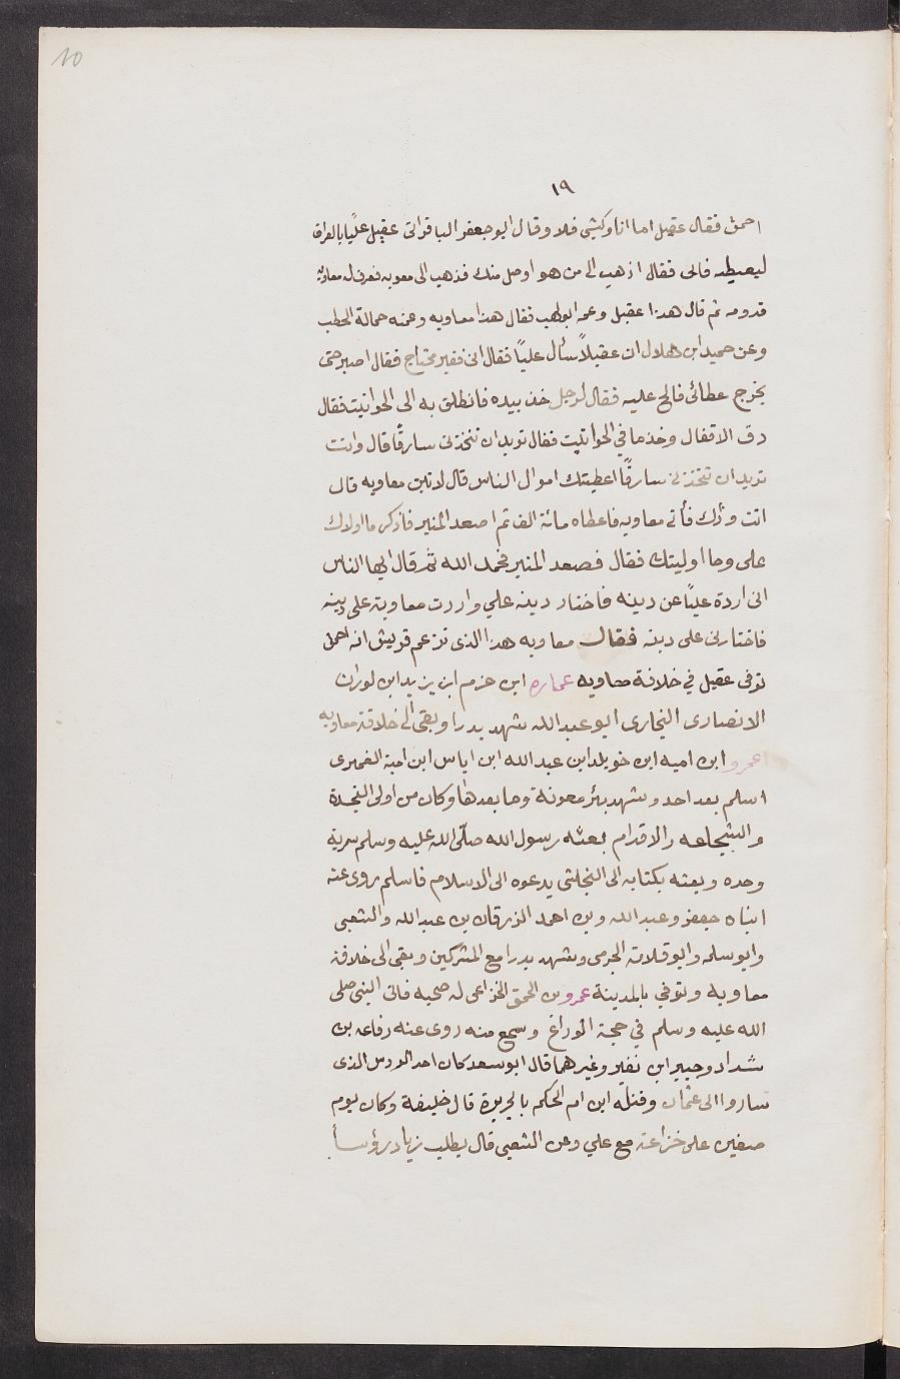 10
١٩
احمق فقال عقيل اما انا وكبشى فلا وقال ابو جعفر الباقر اتى عقيل عليًا بالعراق
ليعطيه فابى فقال اذهب الى من هو اوصل منك فذهب الى معويه فعرف له معاويه
قدومه ثم قال هذا عقيل وعمه ابو لهب فقال هذا معاويه وعمته حمالة الحطب
وعن حميد ابن هلال ان عقيلاً سأل عليًا فقال انى فقير محتاج فقال اصبر حتى
يخرج عطائى فالح عليه فقال لرجل خذ بيده فانطلق به الى الحوانيت فقال
دق الاقفال وخذ ما في الحوانيت فقال تريد ان تتخذنى سارقًا قال وانت
تريد ان تتخذنى سارقًا اعطيتك اموال الناس قال لاتين معاويه قال
انت وذلك فأتى معاويه فاعطاه مائة الف ثم اصعد المنبر فاذكر ما اولاك
على وما اوليتك فقال فصعد المنبر فحمد الله ثم قال ايها الناس
انى اردة عليًا عن دينه فاختار دينه علي واردت معاوية على دينه
فاختارنى على دينه فقال معاويه هذا الذى تزعم قريش انه احمق
توفى عقيل في خلافة معاويه عماره ابن حزم ابن يزيد ابن لوزان
الانصارى النجارى ابو عبد الله شهد بدرا وبقى الى خلافة معاويه
عمرو ابن اميه ابن خويلد ابن عبد الله ابن اياس ابن امية الضميرى
اسلم بعد احد وشهد بئر معونة وما بعدها وكان من اولى النجدة
والشجاعه والاقدام بعثه رسول الله صلّى الله عليه وسلم سرية
وحده وبعثه بكتابه الى النجلشى يدعوه الى الاسلام فاسلم روى عنه
ابناه جعفر وعبد الله وبن احمد الزرقان بن عبد الله والشعبى
وابو سلمه وابو قلابة الجرمى وشهد بدرا مع المشركين وبقى الى خلافة
معاويه وتوفي بالمدينة عمرو بن الحمق الخزاعى له صحبه فاتى النبى صلى
الله عليه وسلم في حجة الوراغ وسمع منه روى عنه رفاعه بن
شداد وجبير ابن نفير وغيرهما قال ابو سعد كان احد الذى
ساروا الى عثمان وقتله ابن ام الحكم بالجزيرة قال خليفة وكان يوم
صفين على خزاعة مع علي وعن الشعبى قال يطلب زياد رؤسأ